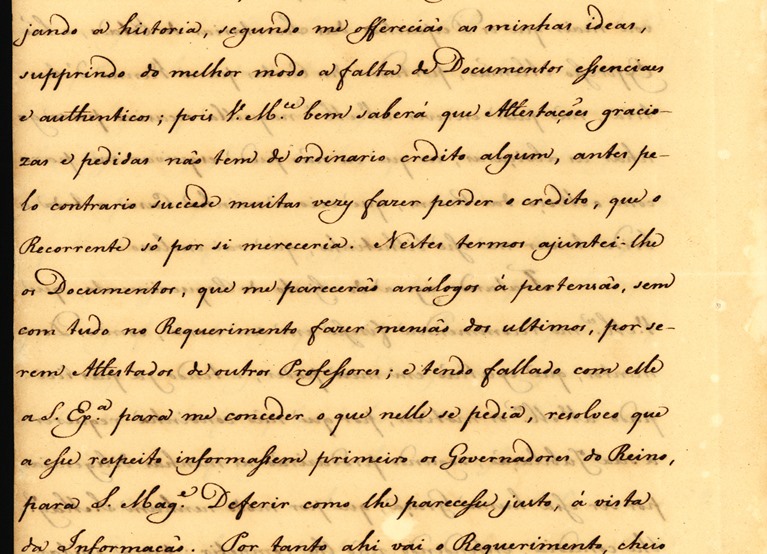 jando a historia, segundo me offerecião as minhas ideas,
supprindo do melhor modo a falta de Documentos essenciaes
e authenticos; pois V. M.ce bem saberá que Attestações gracio-
zas e pedidas não tem de ordinario credito algum, antes pe-
lo contrario succede muitas vezes fazer perder o credito, que o
Recorrente só por si mereceria. Nestes termos ajuntei-lhe
os Documentos, que me parecerão análogos á pertensão, sem
com tudo no Requerimento fazer mensão dos ultimos, por se-
rem Attestados de outros Professores; e tendo fallado com elle
a S. Ex.a para me conceder o que nelle se pedia, resolveo que
a esse respeito informassem primeiro os Governadores do Reino,
para S. Mag.e Deferir como lhe parecesse justo, á vista
da Informacão. Por tanto ahi vai o Requerimento, cheio